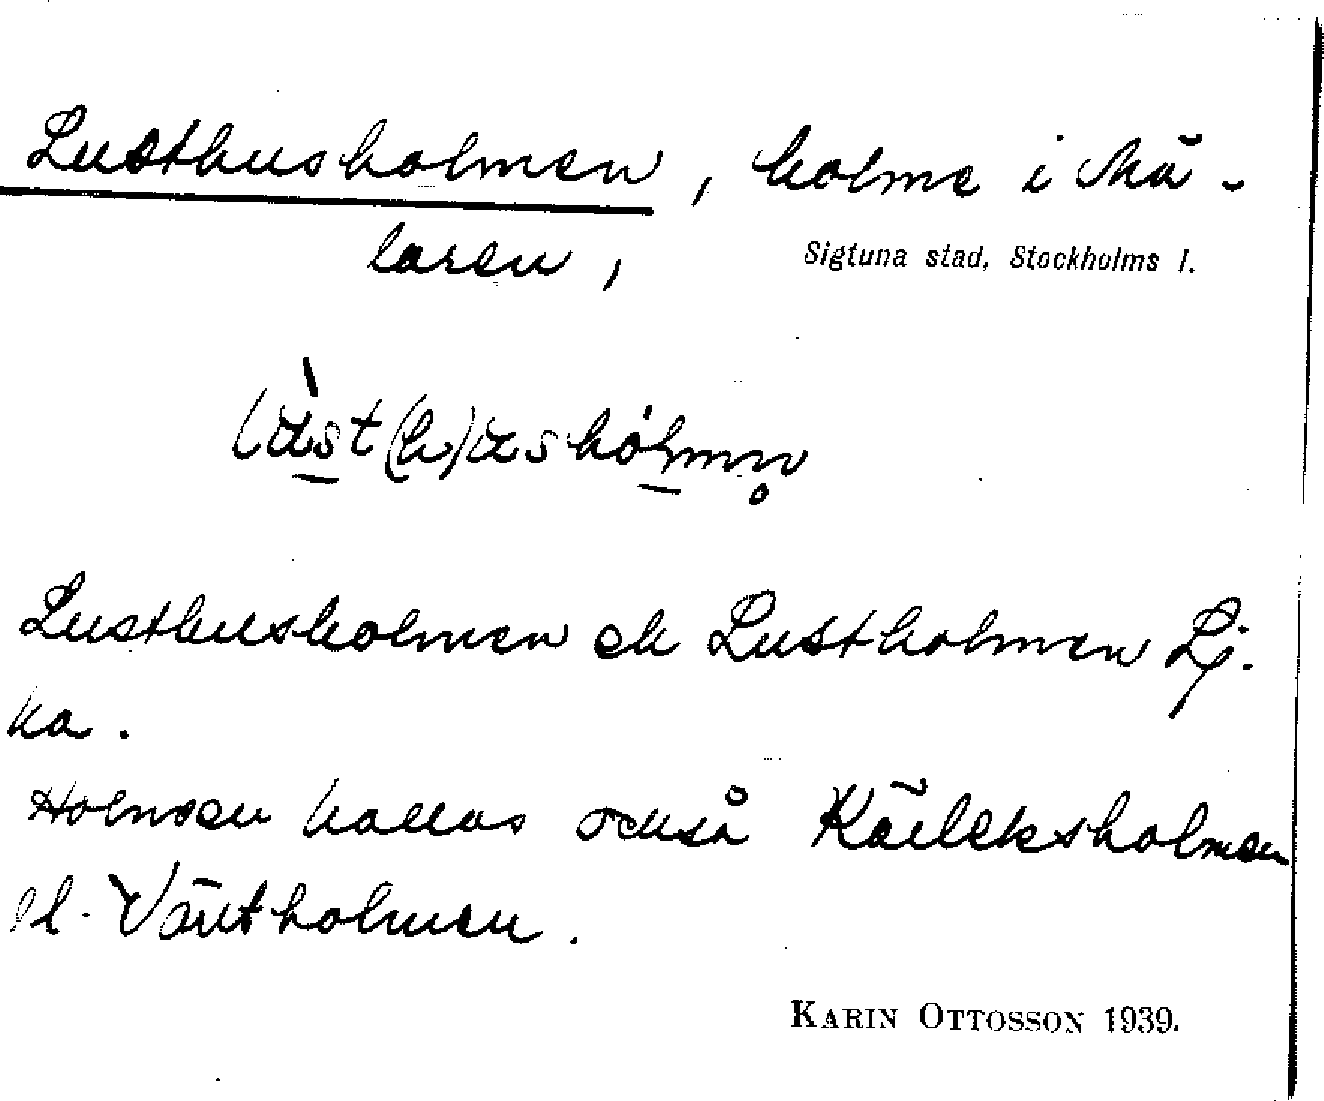 Lusthusholmen, holme i Mä-
laren,
Sigtuna stad, Stockholms l.
Lusthusholmen ek Lustholmen Lj.
ka.
Holmen kallas också Kärleksholmen
el. Värtholmen.
KARIN OTTOSSON 1939.